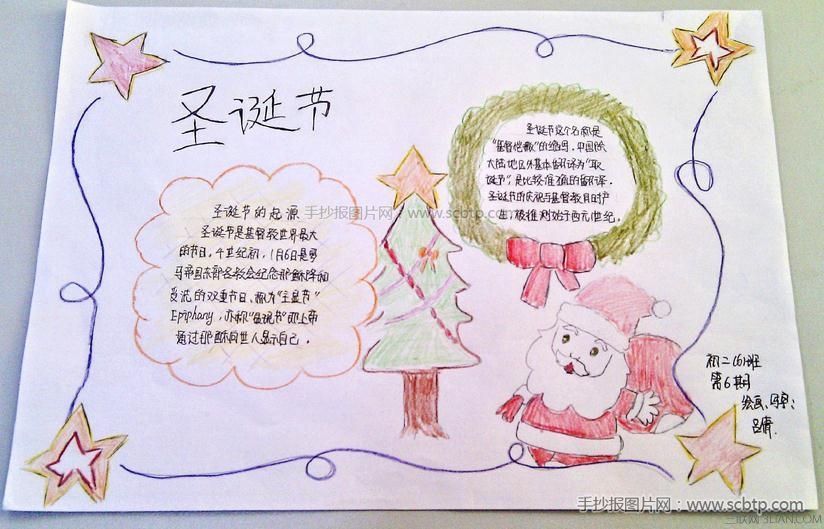 圣诞节
圣诞节的起源
圣诞节是基督教世界最大
的节日。4世纪初,1月6日是罗
马帝国东部各教会纪念耶稣降和
受洗的双重节日、称为"主显节"
Epiphany,亦称"显现节"即上帝
通过耶稣向世人显示自己。
圣诞节这个名称是
"基督弥撒"的缩写。中国除
大陆地区外基本翻译为"耶
诞节"是比较准确的翻译。
圣诞节的庆祝与基督教同时产
生,被推测始于西元1世纪。
初二(6)班
第6期
绘画、
手抄报图片网:www.scbtp.com
手抄报图片网:www.scbtp.com
三联网 3LIAN.COM